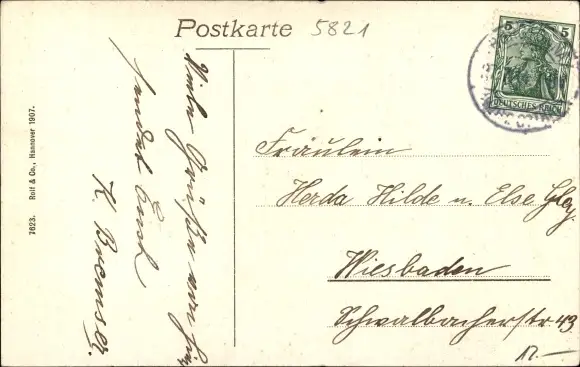 Postkarte 5821
5 5
DEUTSCHES REICH
Viele Grüße von hier
sendet Euch
K. Bremser.
Fräulein
Herda Hilde u. Else
Wiesbaden
Schwalbacherstr 43
12.—
7623. Rolf & Co., Hannover 1907.